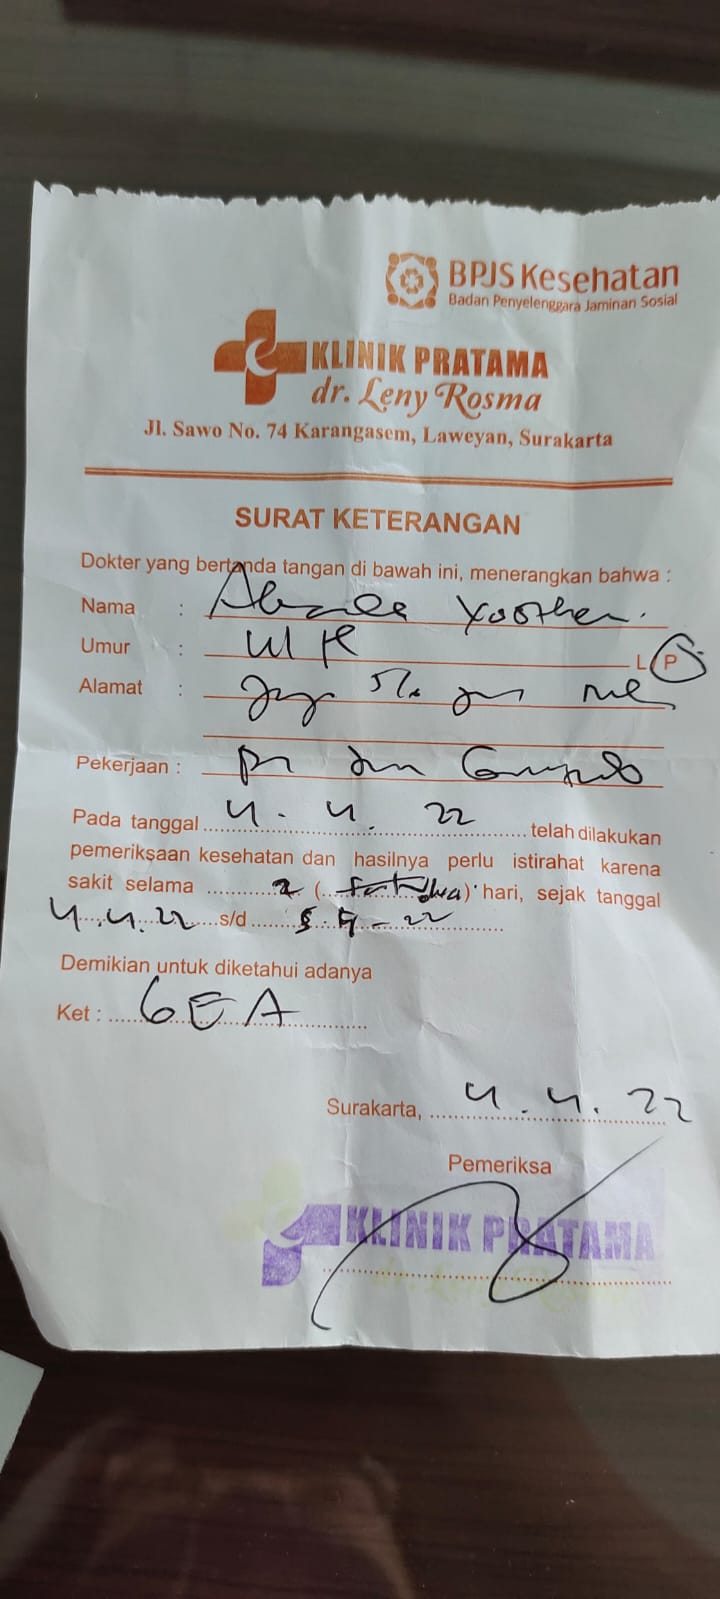 BPJS Kesehatan
Badan Penyelenggara Jaminan Sosial
KLINIK PRATAMA
dr. Leny Rosma
Jl. Sawo No. 74 Karangasem, Laweyan, Surakarta
SURAT KETERANGAN
Dokter yang bertanda tangan di bawah ini, menerangkan bahwa :
Nama :
Umur : L P
Alamat :
Pekerjaan :
Pada tanggal 4. 4. 22 telah dilakukan
pemeriksaan kesehatan dan hasilnya perlu istirahat karena
sakit selama 2 ( dua) hari, sejak tanggal
4.4.22 s/d 5 4 - 22
Demikian untuk diketahui adanya
Ket : GEA
Surakarta, 4.4.22
Pemeriksa
KLINIK PRATAMA